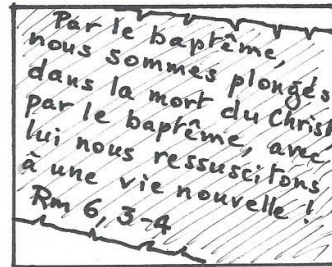 Par le baptême,
nous sommes plongés
dans la mort du Christ
par le baptême, avec
lui nous ressuscitons
à une vie nouvelle !
Rm 6, 3-4